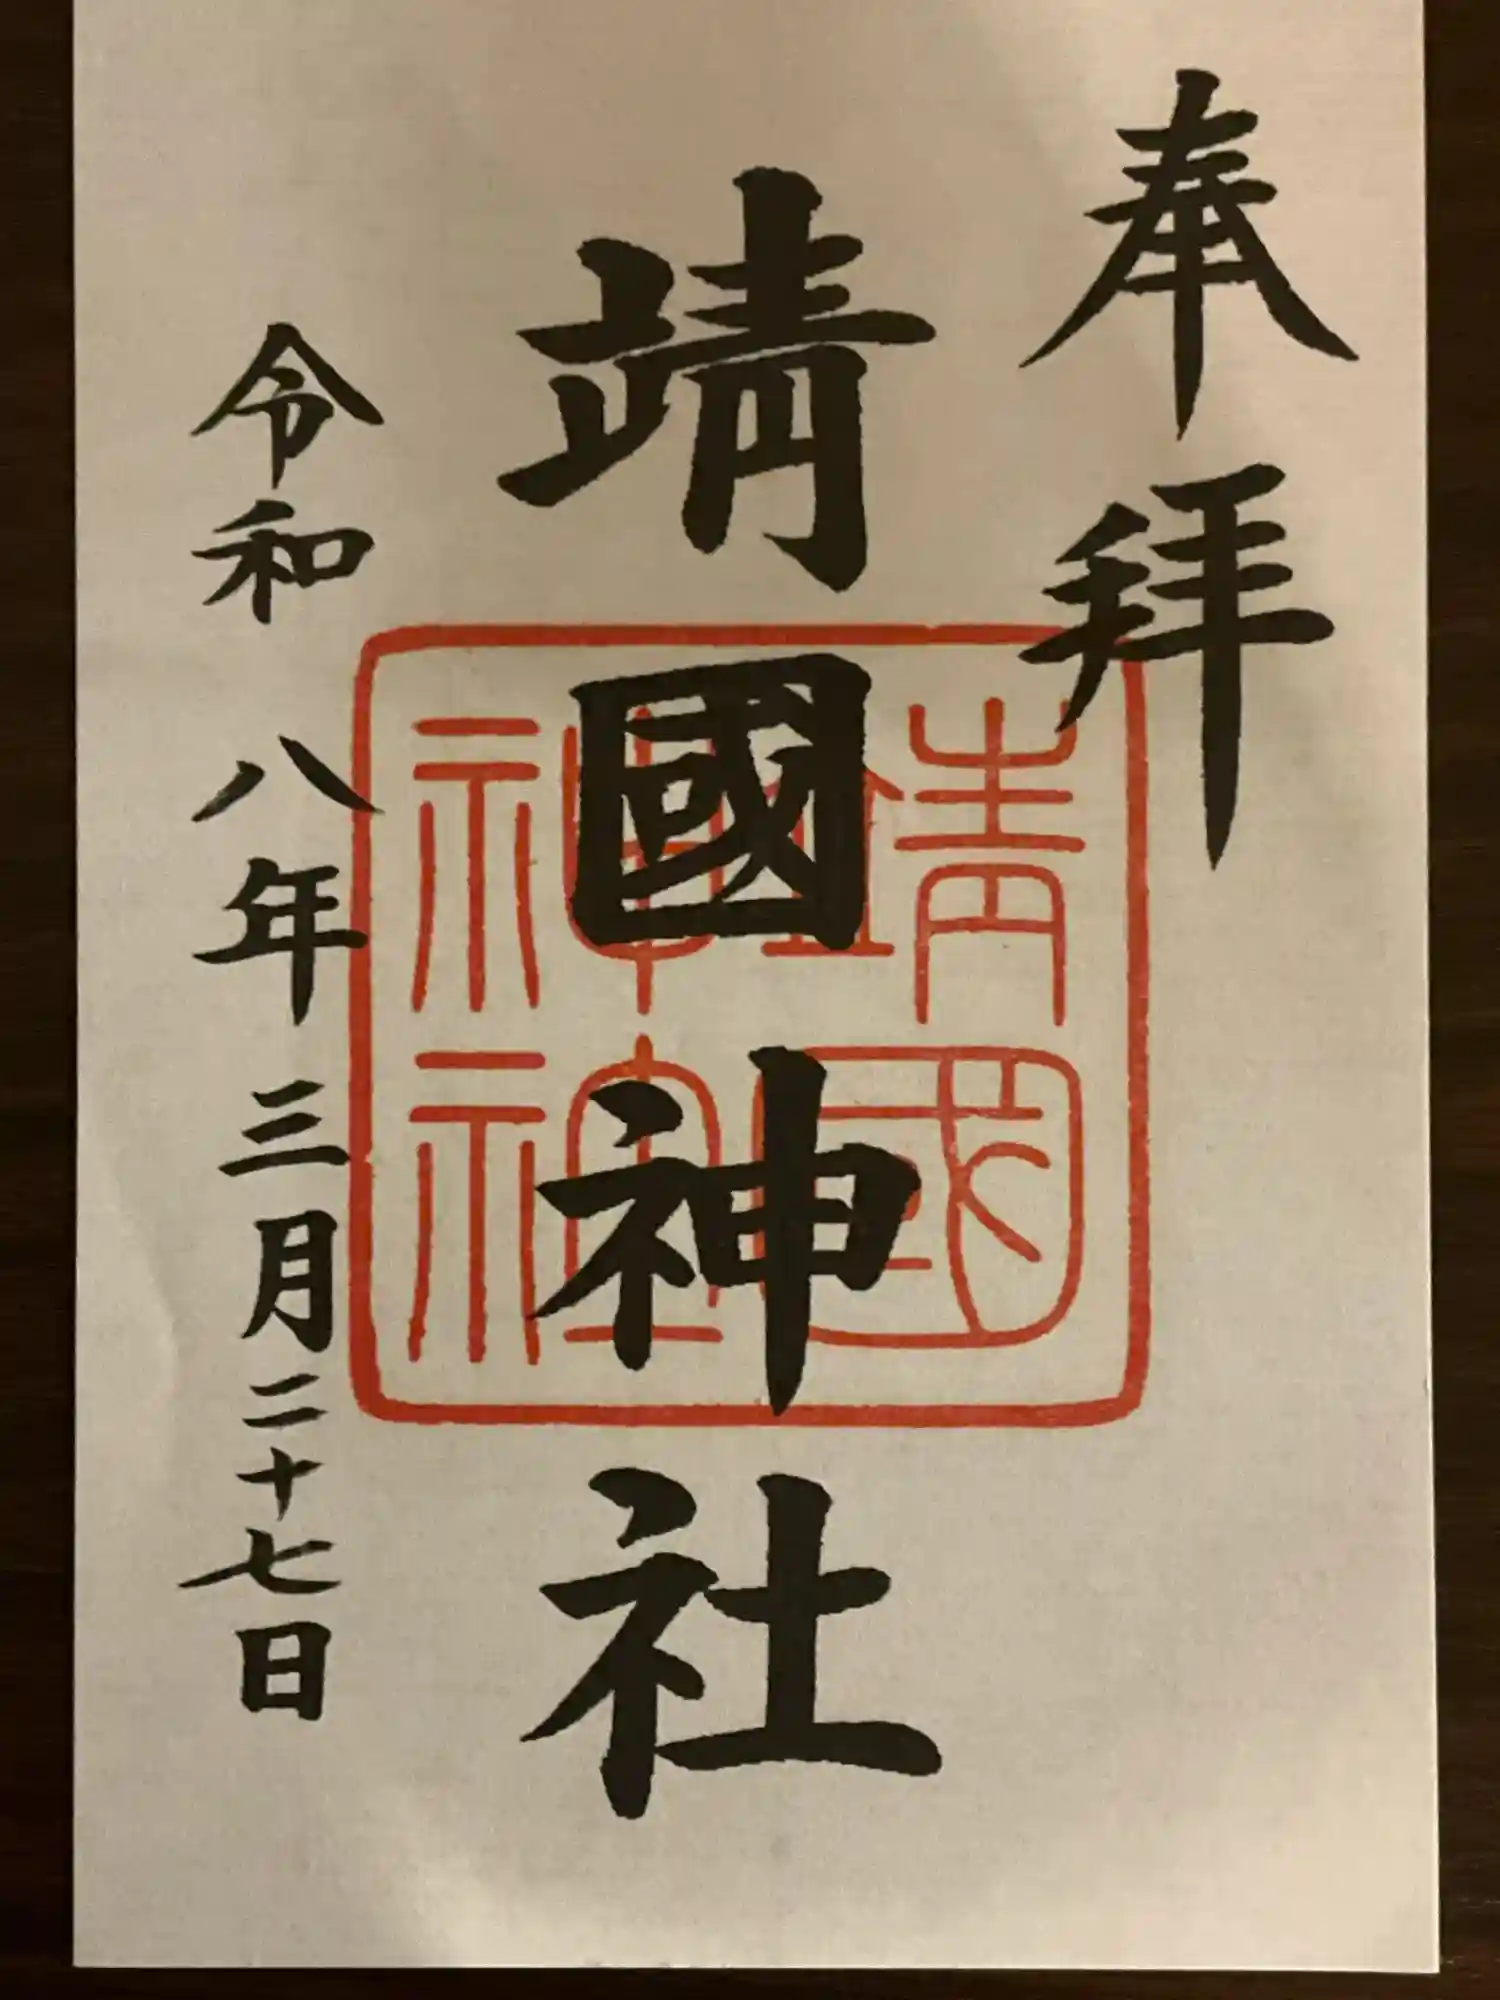 奉拜
靖國神社
靖國
神社
令和八年三月二十七日